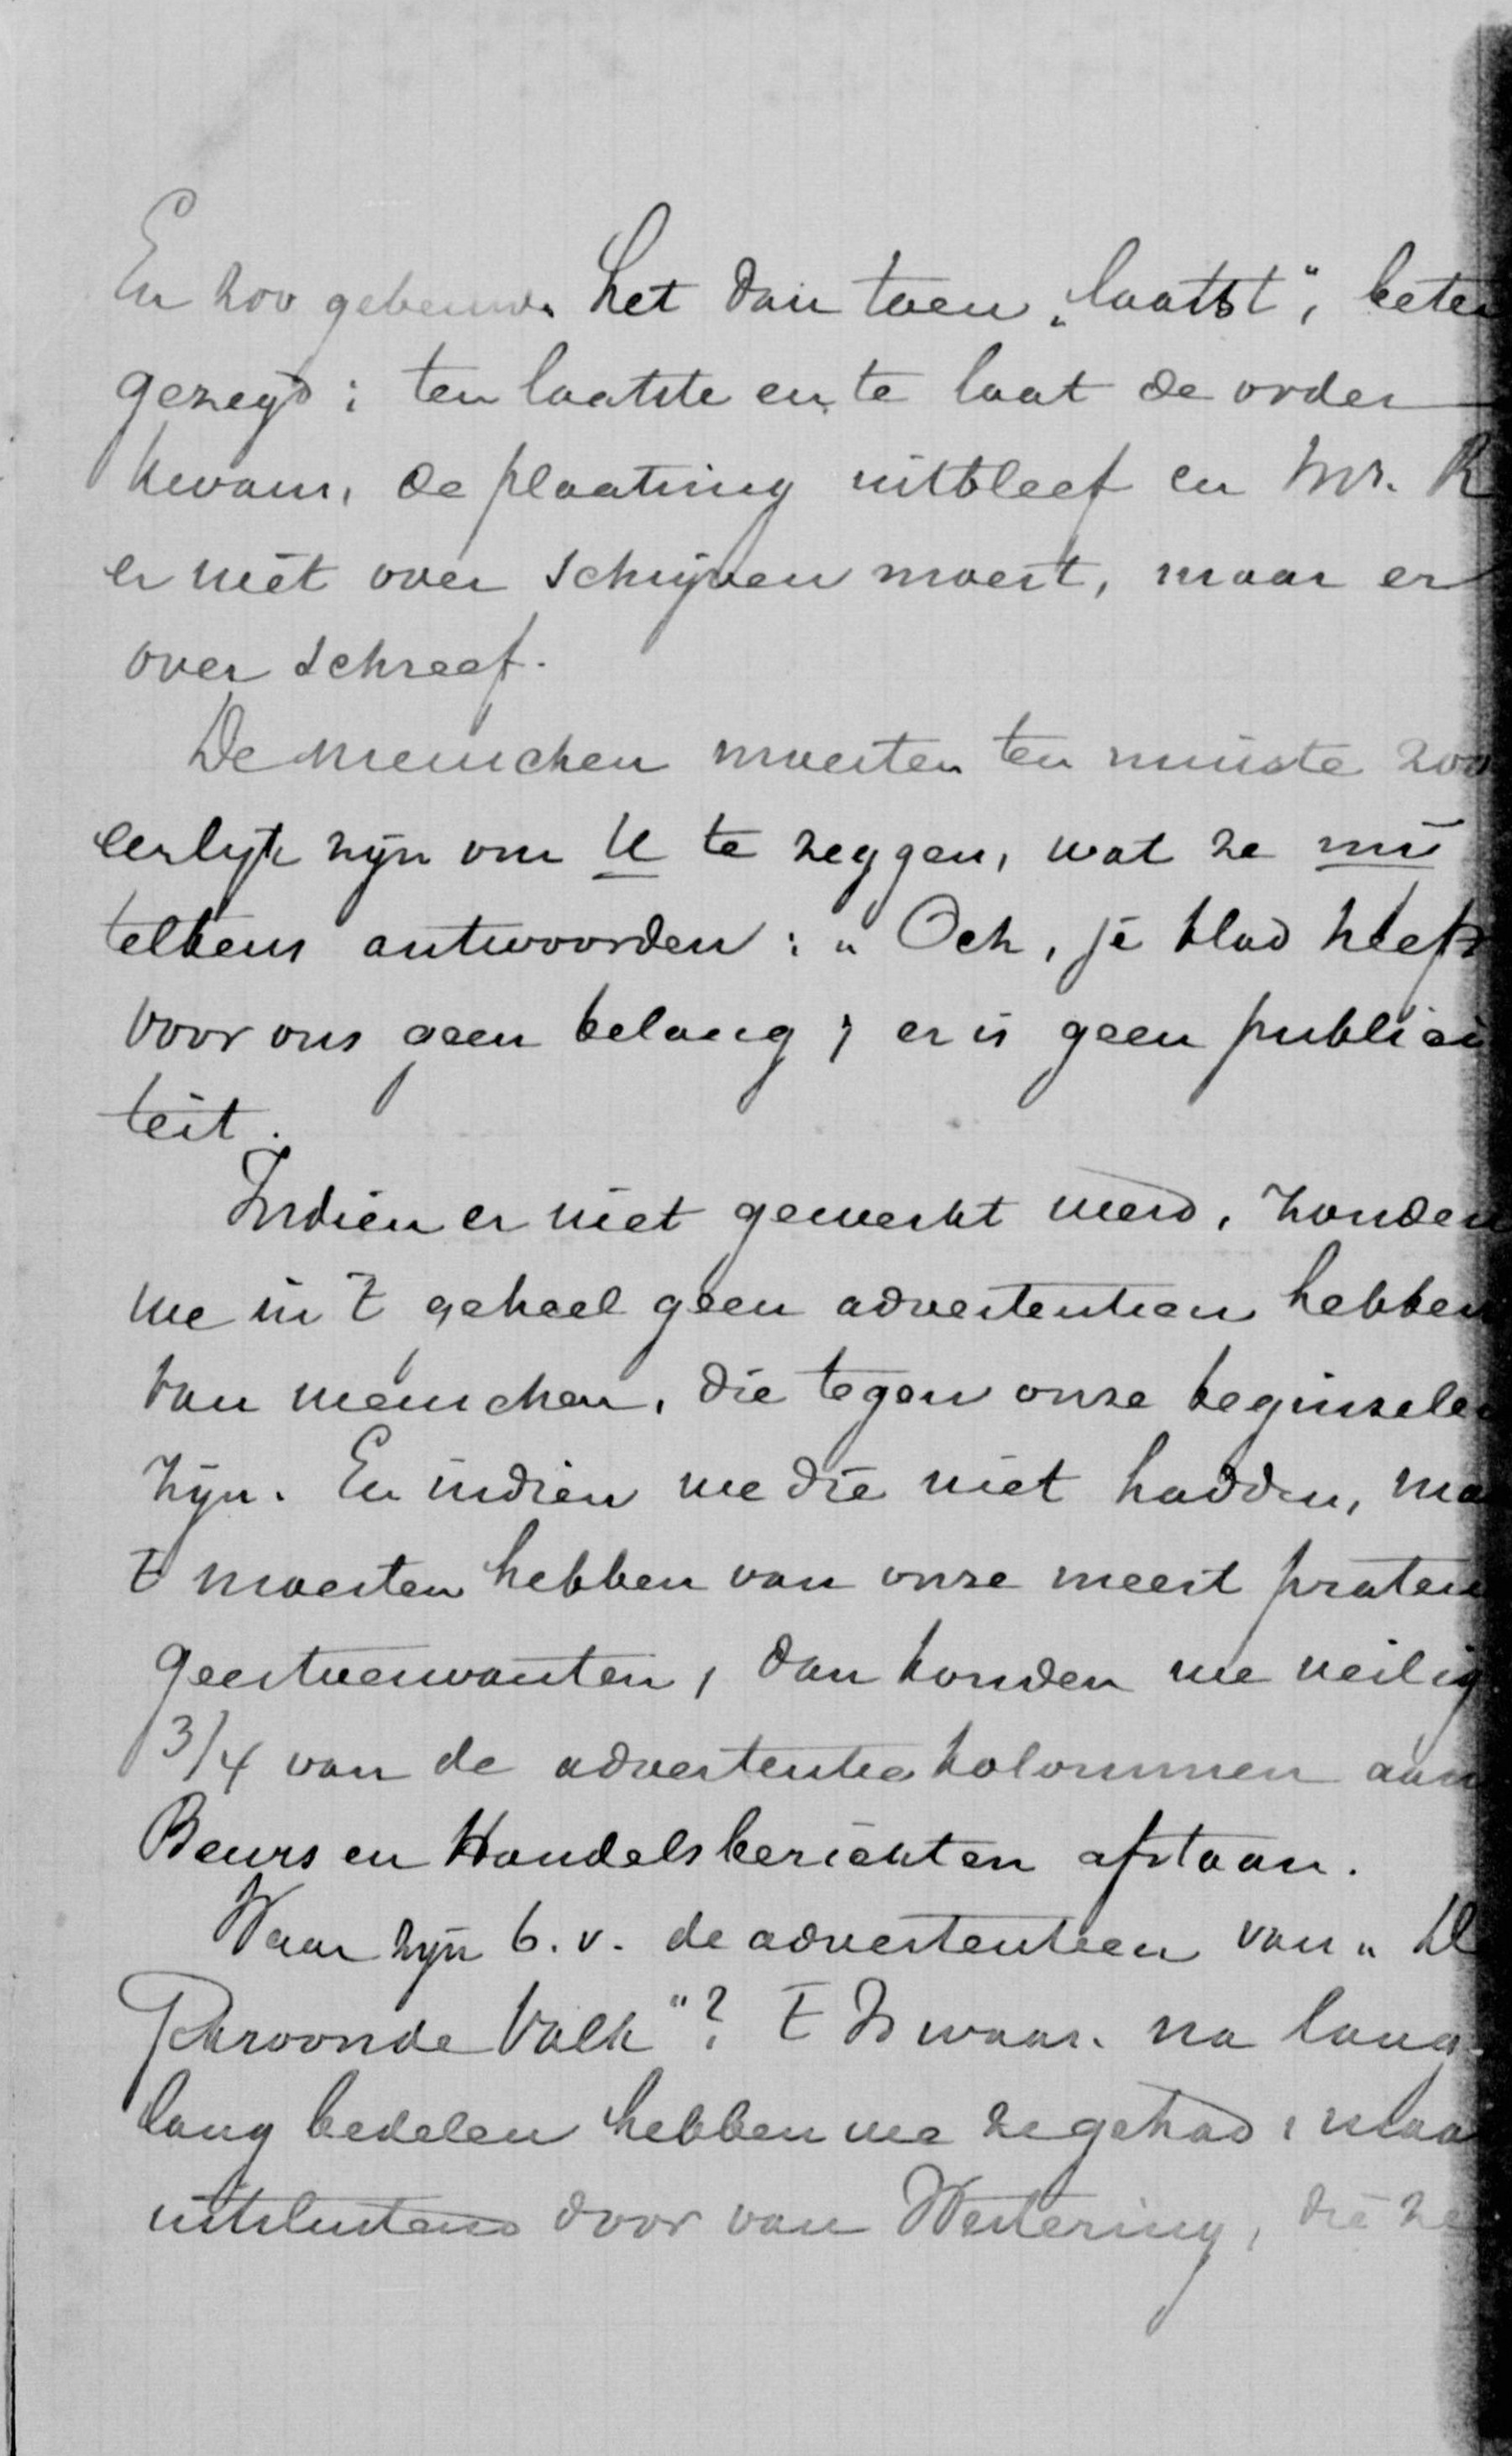 En zoo gebeurde het dan toen „laatst", beter
gezegd: ten laatste en te laat de order
kwam, de plaatsing uitbleef en Mr. R
er niet over schrijven moest, maar er
over schreef.
De menschen moesten ten minste zoo
eerlijk zijn om U te zeggen, wat ze mij
telkens antwoorden: „Och, je blad heeft
voor ons geen belang; er is geen publici
teit.
Indien er niet gewerkt werd, zouden
we in 't geheel geen advertentien hebben
van menschen, die tegen onze beginselen
zijn. En indien we die niet hadden, maa
't moesten hebben van onze meest praten
geestverwanten, dan konden we veilig
3/4 van de advertentiekolommen aan
Beurs en Handelsberichten afstaan.
Waar zijn b.v. de advertentieen van „De
Gekroonde Valk"? 't Is waar, na lang-
lang bedelen hebben we ze gehad, maa
uitsluitend door van Westering, die ze